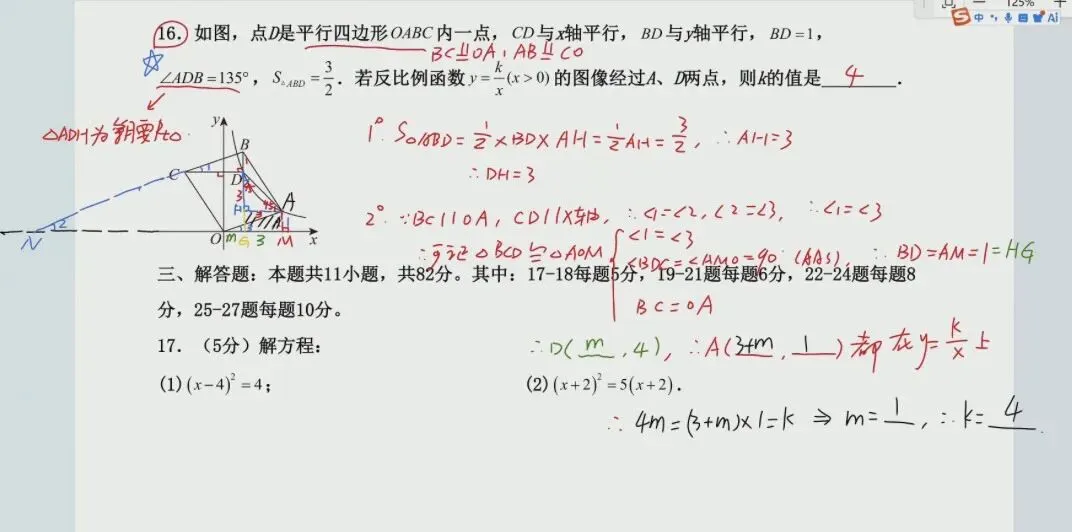 125%
中
Ai
16. 如图，点D是平行四边形OABC内一点，CD与x轴平行，BD与y轴平行，BD=1，
BC∥OA，AB∥CO
∠ADB=135°，S△ABD=3/2．若反比例函数y=k/x(x>0)的图像经过A、D两点，则k的值是 4 ．
△ADH为等腰Rt△
y
B
1
C
1
D
3
45
A
H
3
45
N
2
O
m
G
3
M
x
1° S△ABD=1/2×BD×AH=1/2AH=3/2，∴AH=3
∴DH=3
2° ∵BC∥OA，CD∥X轴，∴<1=<2，<2=<3，∴<1=<3
∴可证△BCD≌△AOM { <1=<3
<BDC=<AMO=90° (AAS)，∴BD=AM=1=HG
BC=OA
三、解答题：本题共11小题，共82分。其中：17-18每题5分，19-21题每题6分，22-24题每题8
分，25-27题每题10分。
∴D(m，4)，∴A(3+m，1)都在y=k/x上
17．（5分）解方程：
(1)(x−4)²=4；
(2)(x+2)²=5(x+2)．
∴4m=(3+m)×1=k ⇒ m=1，∴k=4．